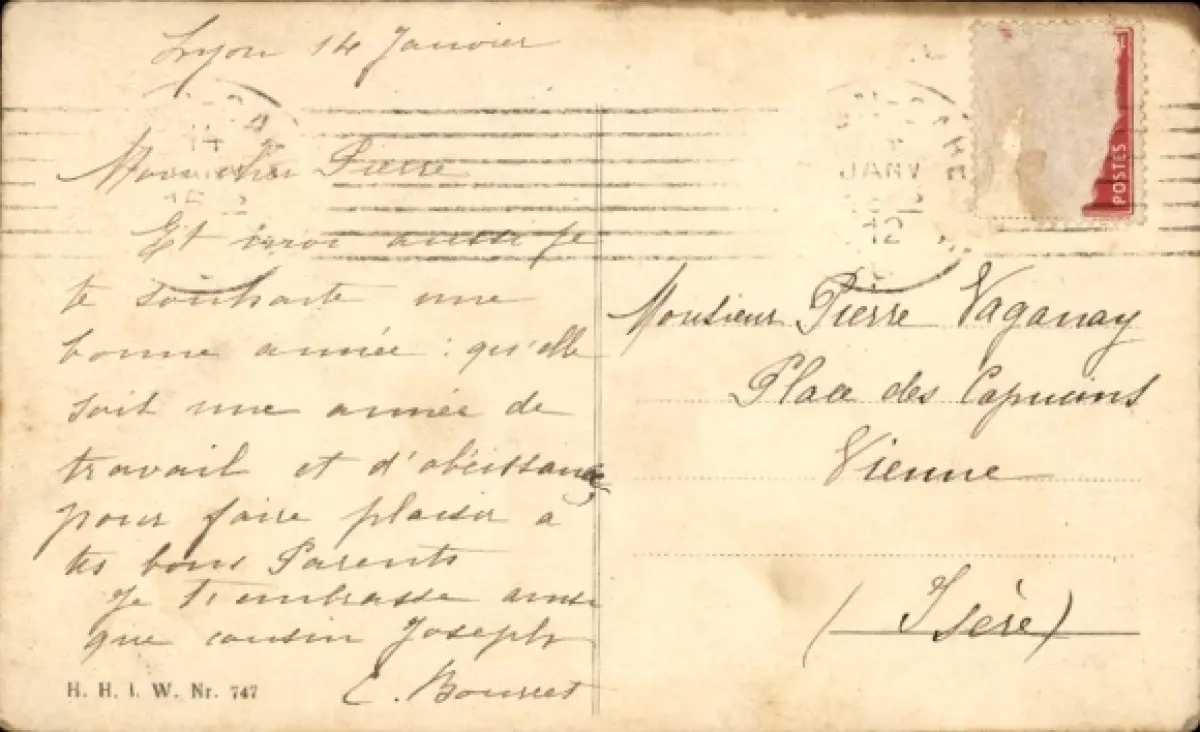 Lyon 14 Janvier
Mon cher Pierre
Et moi aussi je
te souhaite une
bonne année : qu'elle
soit une année de
travail et d'obéissance
pour faire plaisir a
tes bons Parents
Je t'embrasse ainsi
que cousin Joseph
H. H. I. W. Nr. 747
14
JANV
12
POSTES
Monsieur Pierre Vaganay
Place des Capucins
Vienne
(Isère)